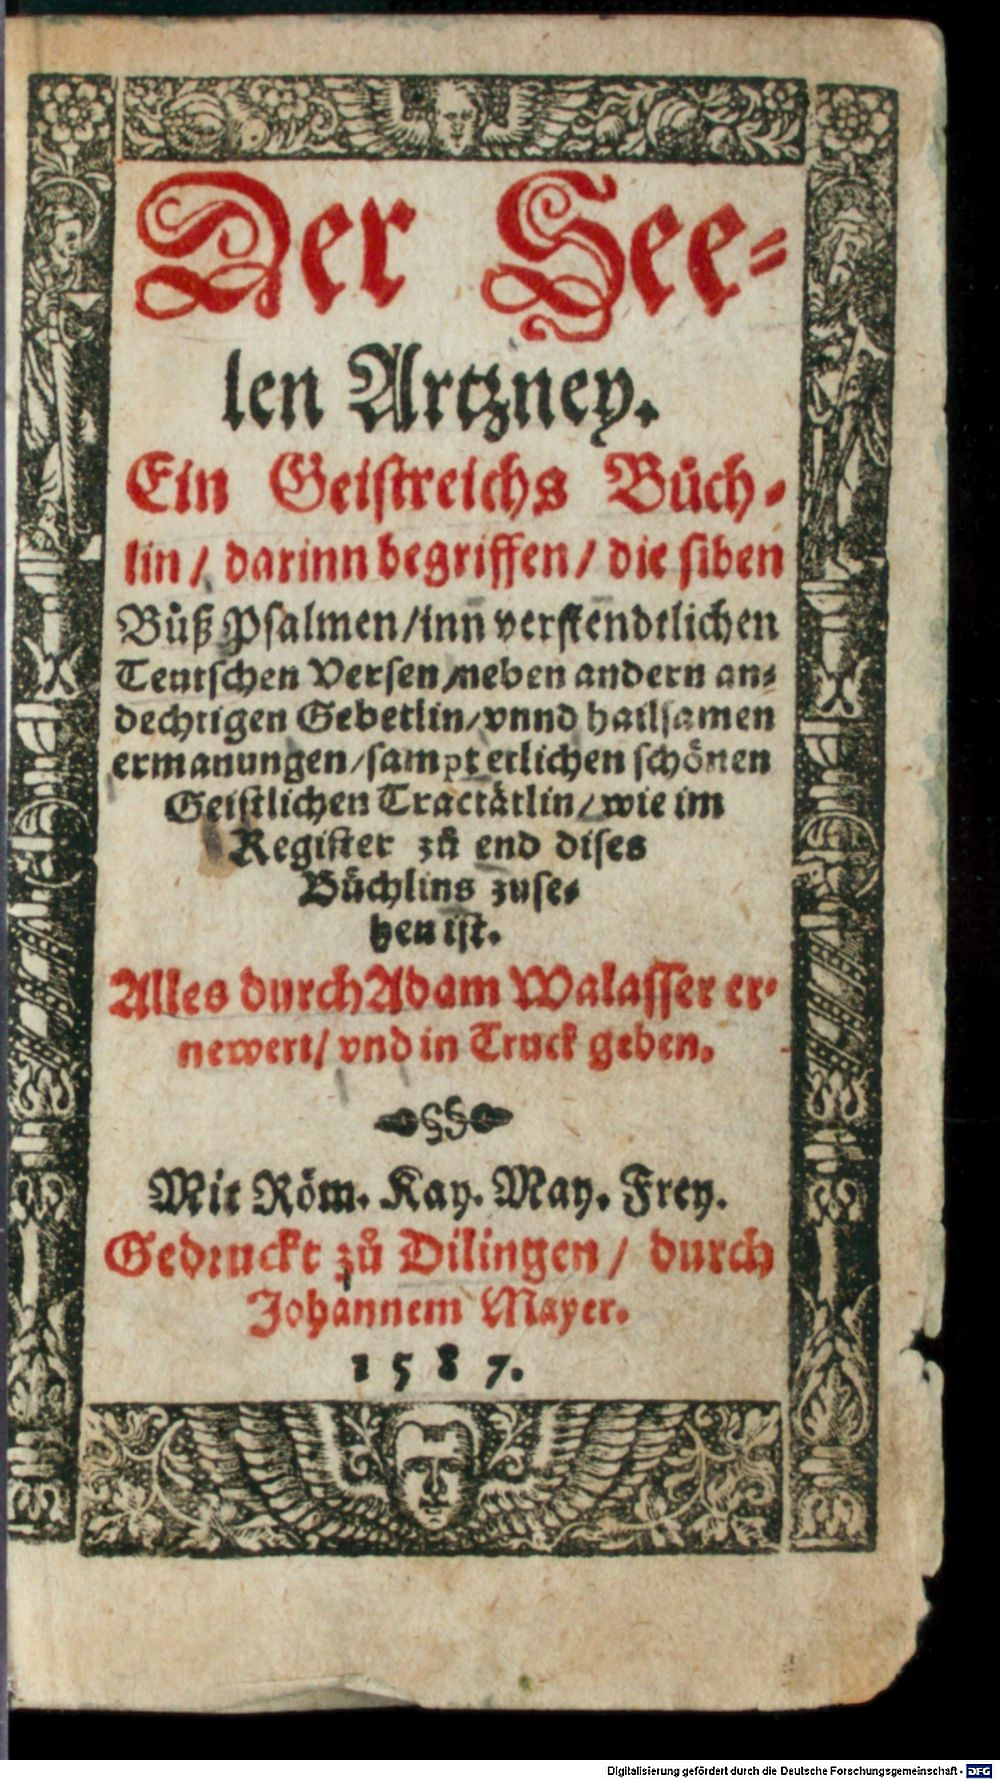 Der See-
len Artzney.
Ein Geistreichs Büch-
lin / darinn begriffen / die siben
Bůß Psalmen / inn verstendtlichen
Teutschen Versen / neben andern an-
dechtigen Gebetlin / vnnd hailsamen
ermanungen / sampt etlichen schönen
Geistlichen Tractätlin / wie im
Register zů end dises
Büchlins zuse-
hen ist.
Alles durch Adam Walasser er-
newert / vnd in Truck geben.
Mit Röm. Kay. May. Frey.
Gedruckt zů Dilingen / durch
Johannem Mayer.
1587.
Digitalisierung gefördert durch die Deutsche Forschungsgemeinschaft - DFG